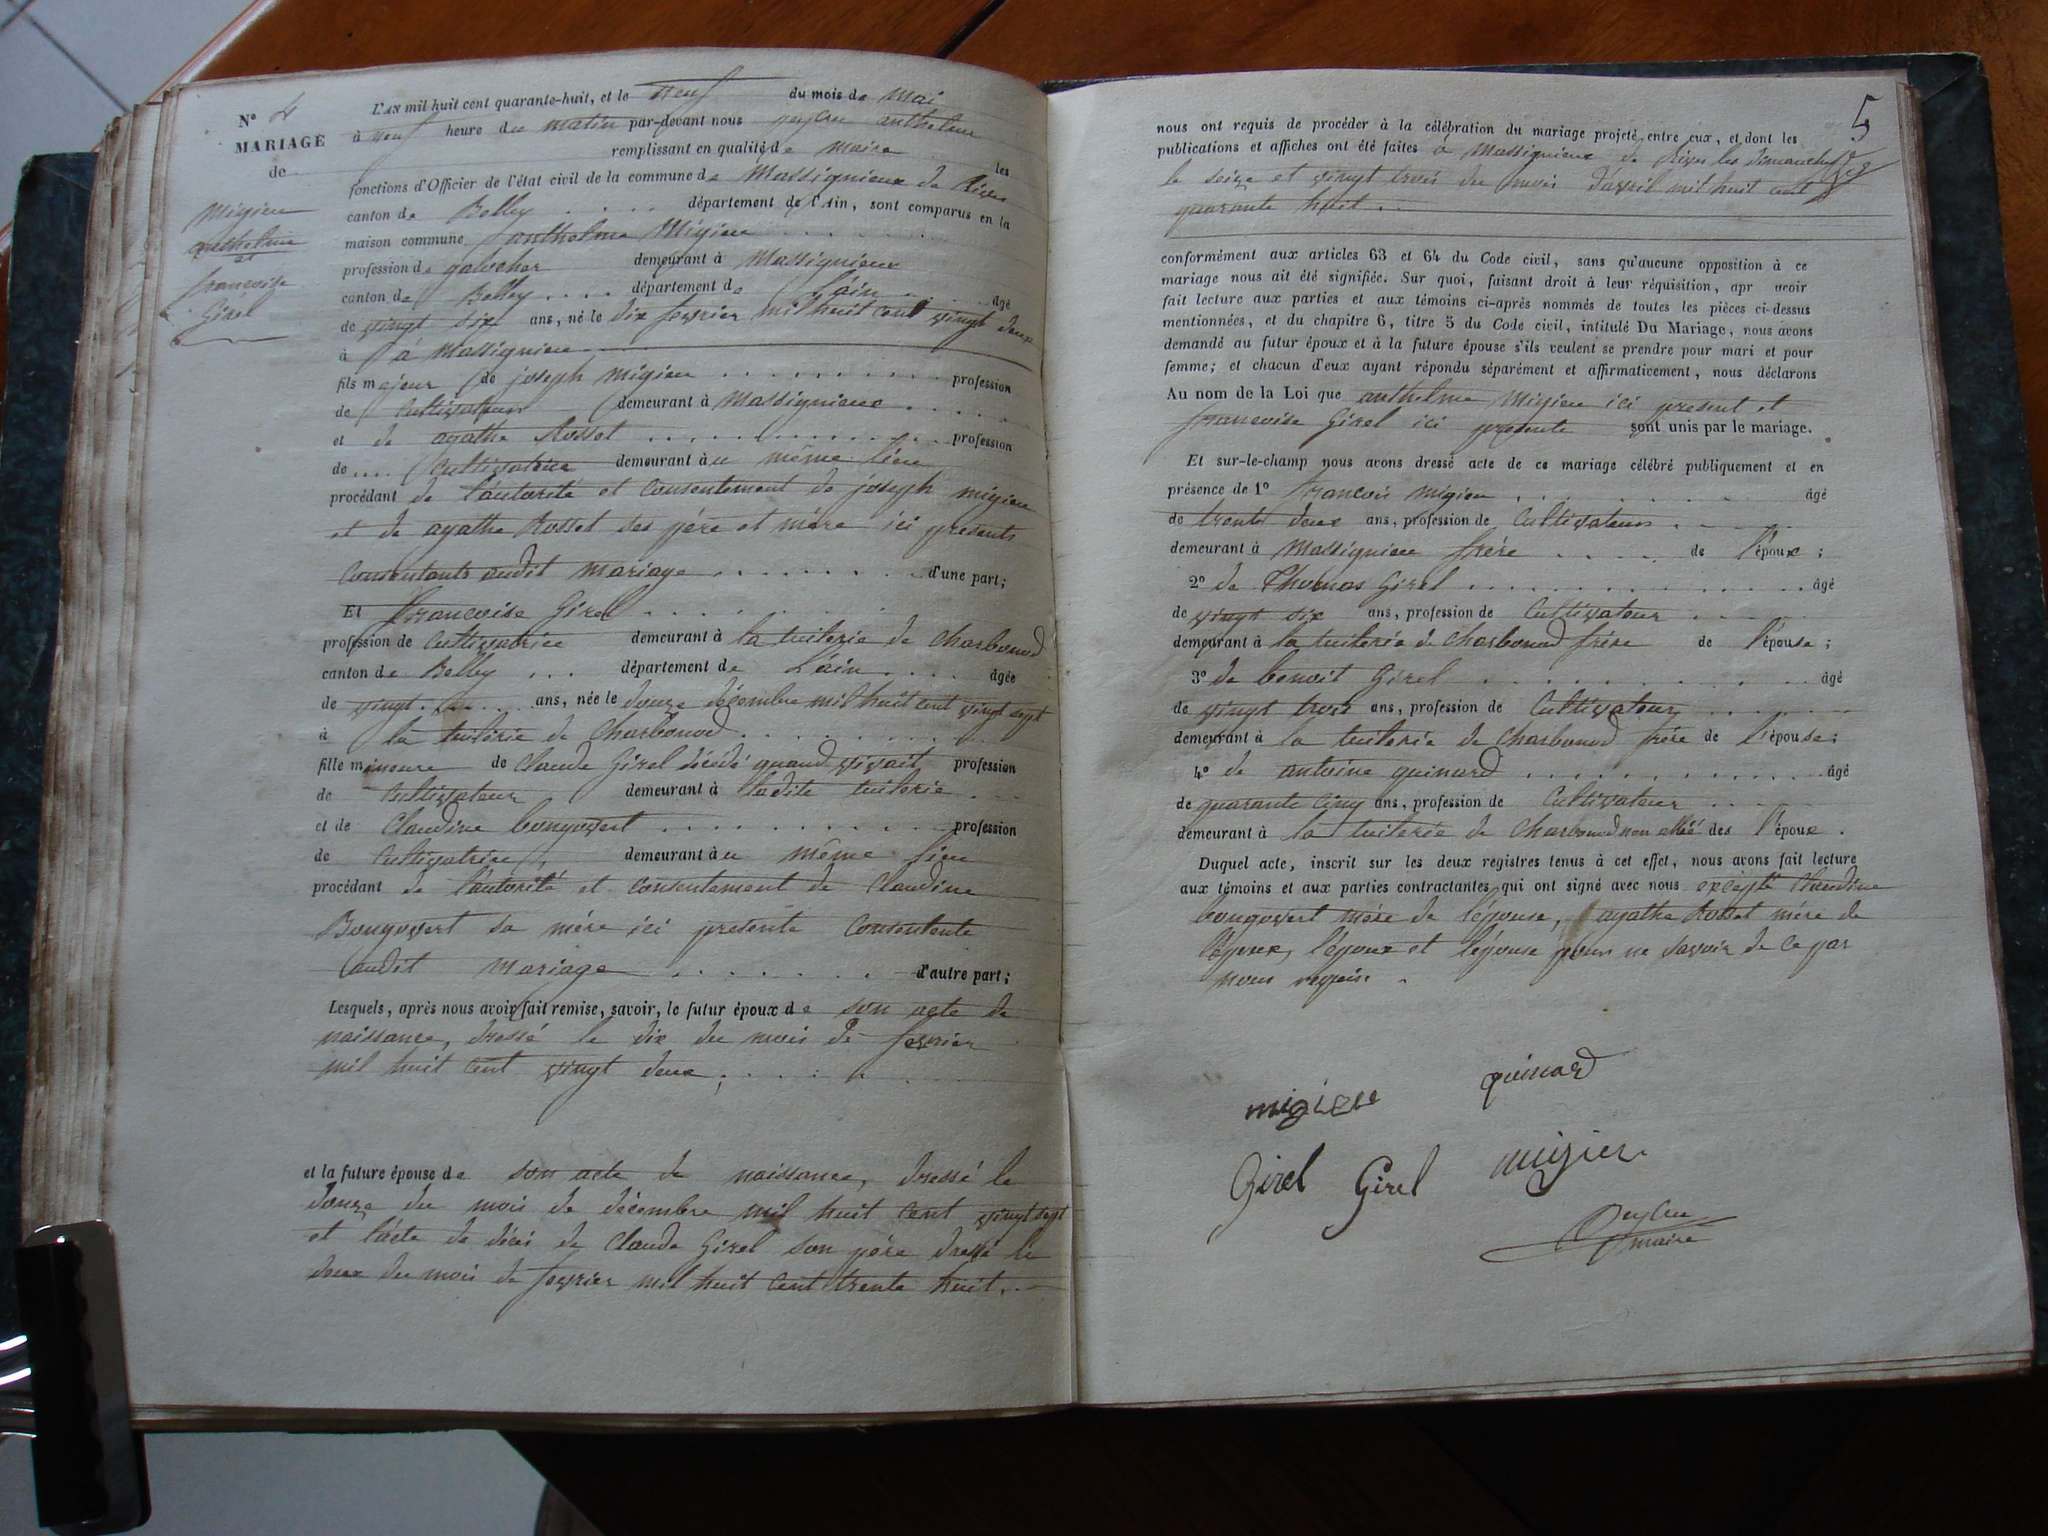 N° 4
MARIAGE
de
Migieu
anthelme
et
francoise
Girel
L'AN mil huit cent quarante-huit, et le neuf du mois de mai
à neuf heure du matin par-devant nous peylin anthelme
remplissant en qualité de maire les
fonctions d'Officier de l'état civil de la commune de Massignieux de Rives
canton de Belley département de l'Ain, sont comparus en la
maison commune anthelme Migieu
profession de demeurant à Massignieu
canton de Belley département de l'ain âgé
de vingt six ans, né le dix fevrier mil huit cent vingt deux
à à Massignieu
fils majeur de joseph migieu profession
de Cultivateur demeurant à Massignieux
et de agathe Rosset profession
de Cultivatrice demeurant au même lieu
procédant de l'autorité et consentement de joseph migieu
et de agathe Rosset ses père et mère ici présents
Consentants audit mariage d'une part;
Et francoise Girel
profession de Cultivatrice demeurant à la tuilerie de charbonod
canton de Belley département de L'ain âgée
de vingt ans, née le douze décembre mil huit cent vingt sept
à la tuilerie de Charbonod
fille mineure de Claude Girel décédé quand vivait profession
de Cultivateur demeurant à ladite tuilerie
et de Claudine bougovert profession
de Cultivatrice demeurant au même lieu
procédant de l'autorité et consentement de Claudine
Bougovert sa mére ici présente Consentente
audit mariage d'autre part;
Lesquels, après nous avoir fait remise, savoir, le futur époux de son acte de
naissance, dressé le dix du mois de fevrier
mil huit cent vingt deux;
et la future épouse de son acte de naissance, dressé le
douze du mois de décembre mil huit cent vingt sept
et l'acte de décés de Claude Girel son pére dressé le
deux du mois de fevrier mil huit cent trente huit.
5
nous ont requis de procéder à la célébration du mariage projeté entre eux, et dont les
publications et affiches ont été faites à Massignieux de Rives les dimanches
le seize et vingt trois du mois d'avril mil huit cent
quarante huit.
conformément aux articles 63 et 64 du Code civil, sans qu'aucune opposition à ce
mariage nous ait été signifiée. Sur quoi, faisant droit à leur réquisition, apr avoir
fait lecture aux parties et aux témoins ci-après nommés de toutes les pièces ci-dessus
mentionnées, et du chapitre 6, titre 5 du Code civil, intitulé Du Mariage, nous avons
demandé au futur époux et à la future épouse s'ils veulent se prendre pour mari et pour
femme; et chacun d'eux ayant répondu séparément et affirmativement, nous déclarons
Au nom de la Loi que anthelme Migieu ici présent et
francoise Girel ici présente sont unis par le mariage.
Et sur-le-champ nous avons dressé acte de ce mariage célébré publiquement et en
présence de 1° francois migieu âgé
de trente deux ans, profession de Cultivateur
demeurant à Massignieu frére de l'époux;
2° de Thomas Girel âgé
de vingt six ans, profession de Cultivateur
demeurant à la tuilerie de Charbonod frére de l'épouse;
3° de benoit Girel âgé
de vingt trois ans, profession de Cultivateur
demeurant à la tuilerie de charbonod frére de l'épouse;
4° de antoine quinard âgé
de quarante cinq ans, profession de Cultivateur
demeurant à la tuilerie de charbonod non allié des l'époux.
Duquel acte, inscrit sur les deux registres tenus à cet effet, nous avons fait lecture
aux témoins et aux parties contractantes qui ont signé avec nous excepté Claudine
bougovert mére de l'épouse, agathe Rosset mére de
l'époux, l'époux et l'épouse pour ne savoir de ce par
nous requis.
quinard
migieu
Girel Girel migieu
peylin
maire